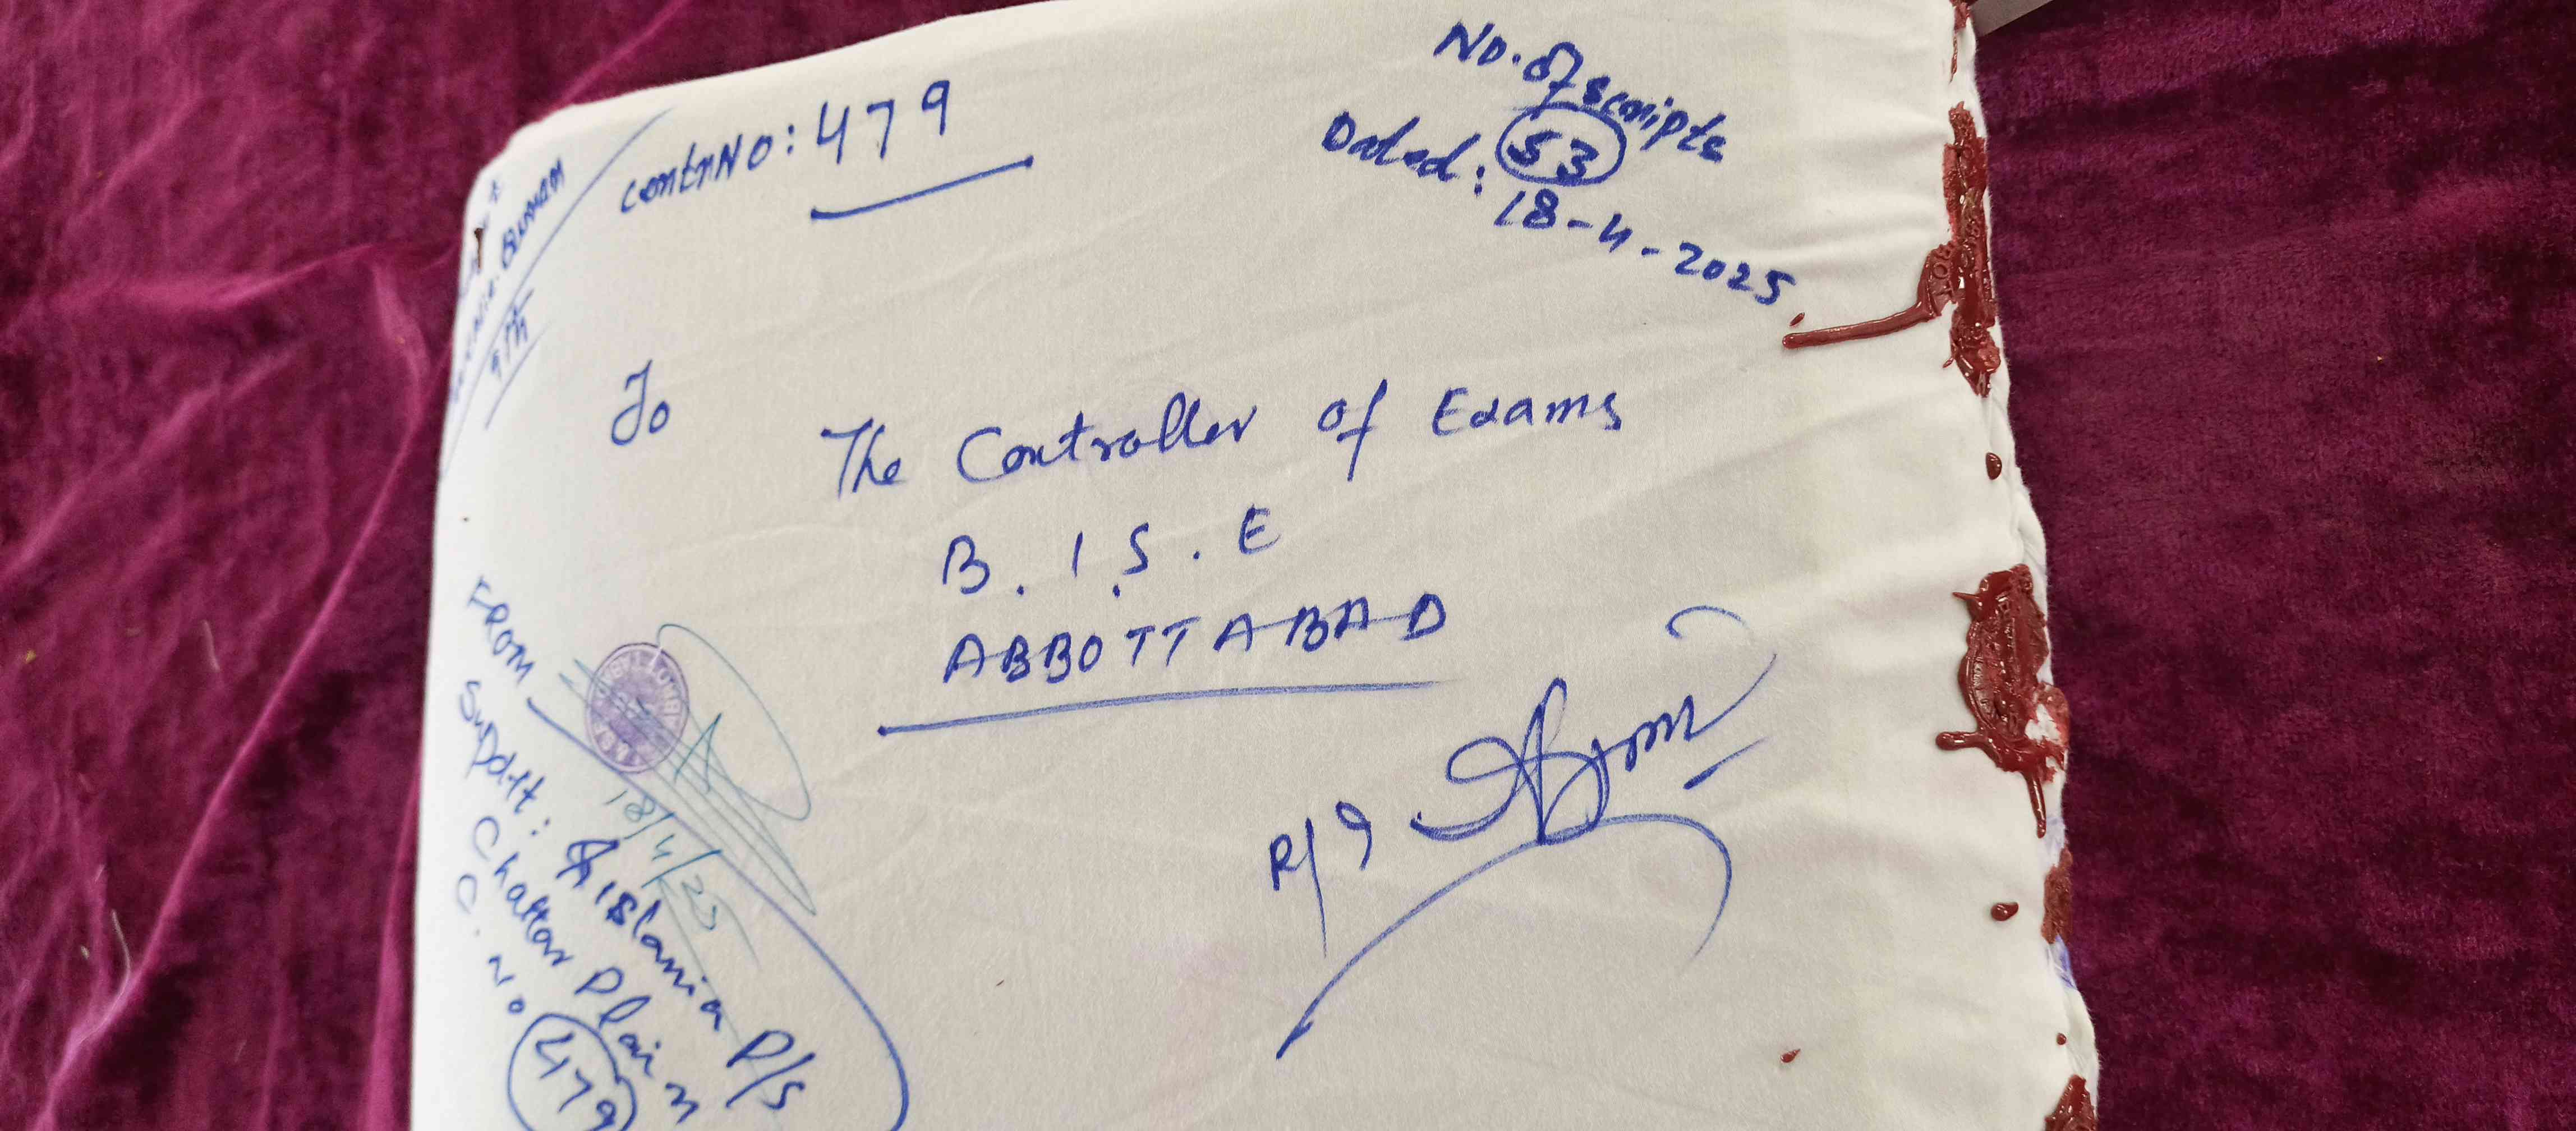 CentrNO: 479
No. of scripts
53
Dated: 18-4-2025
9th
To
The Controller of Exams
B.I.S.E
ABBOTTABAD
R/9
FROM
Supdtt: Islamia P/S
Chattar Plain
C. No 479
18/4/25